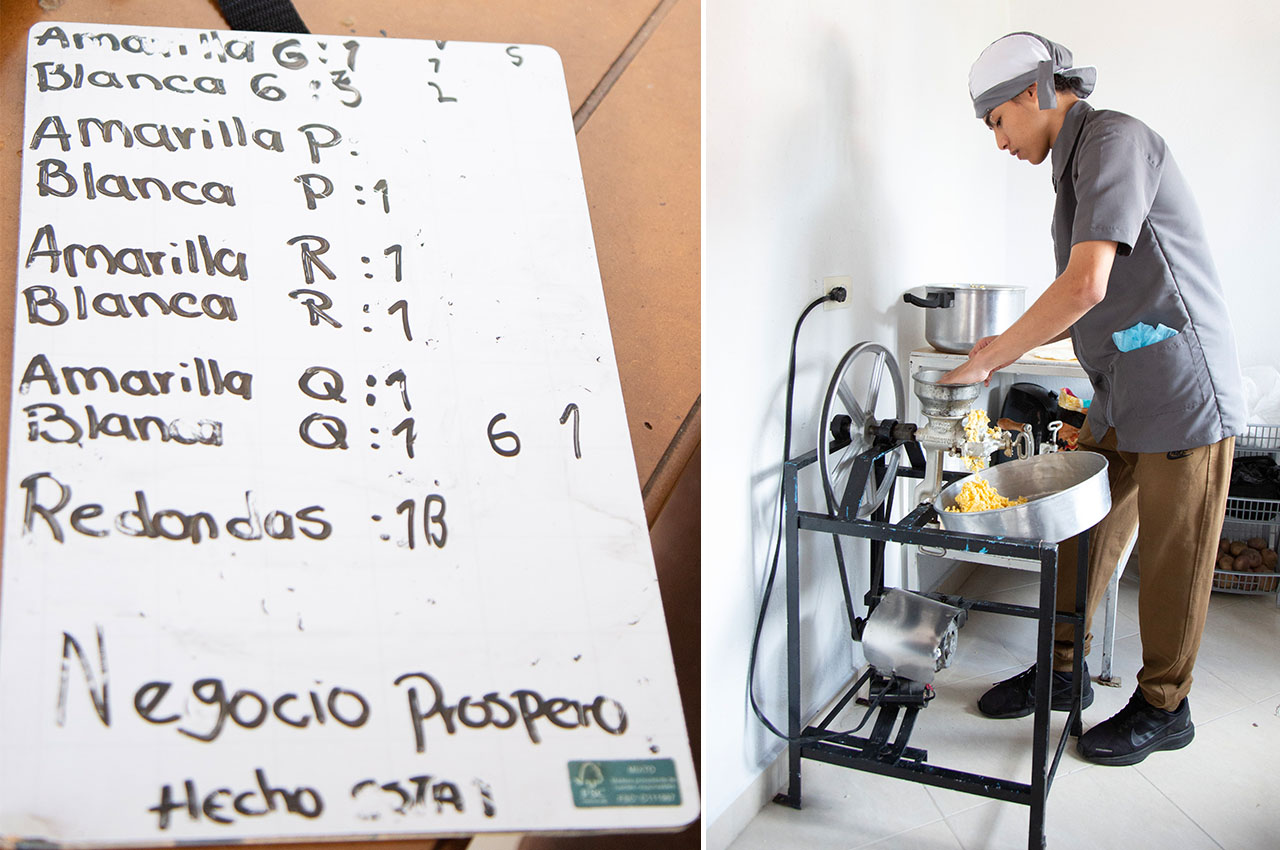 Amarilla G:1 S
1
Blanca G:3 2
Amarilla P.
Blanca P:1
Amarilla R:1
Blanca R:1
Amarilla Q:1
Blanca Q:1 6 1
Redondas :1B
Negocio Prospero
Hecho esta!
MIXTO
FSC